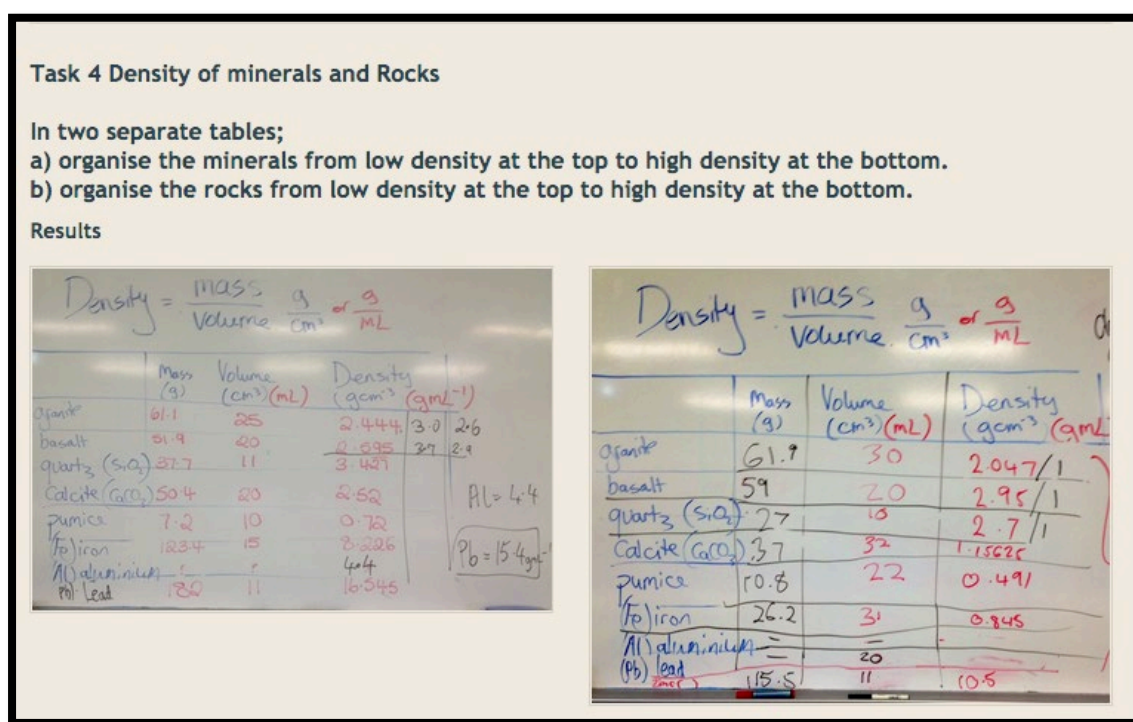 Task 4 Density of minerals and Rocks
In two separate tables;
a) organise the minerals from low density at the top to high density at the bottom.
b) organise the rocks from low density at the top to high density at the bottom.
Results
Density = mass / Volume g/cm³ or g/mL
Mass (g) Volume (cm³) (mL) Density (gcm⁻³) (gmL⁻¹)
granite 61.1 25 2.444 3.0 2.6
basalt 51.9 20 2.595 3.7 2.9
quartz (SiO₂) 37.7 11 3.427
Calcite (CaCO₃) 50.4 20 2.52
Al = 4.4
pumice 7.2 10 0.72
(Fe) iron 123.4 15 8.226
Pb = 15.4
(Al) aluminium 4.4
(Pb) Lead 182 11 16.545
Density = mass / Volume. g/cm³ or g/mL
Mass (g) Volume (cm³) (mL) Density (gcm⁻³) (gmL
granite 61.9 30 2.047/1
basalt 59 20 2.95/1
quartz (SiO₂) 27 10 2.7/1
Calcite (CaCO₃) 37 32 1.15625
pumice 10.8 22 0.491
(Fe) iron 26.2 31 0.845
(Al) aluminium – –
20
(Pb) lead 115.5 11 10.5